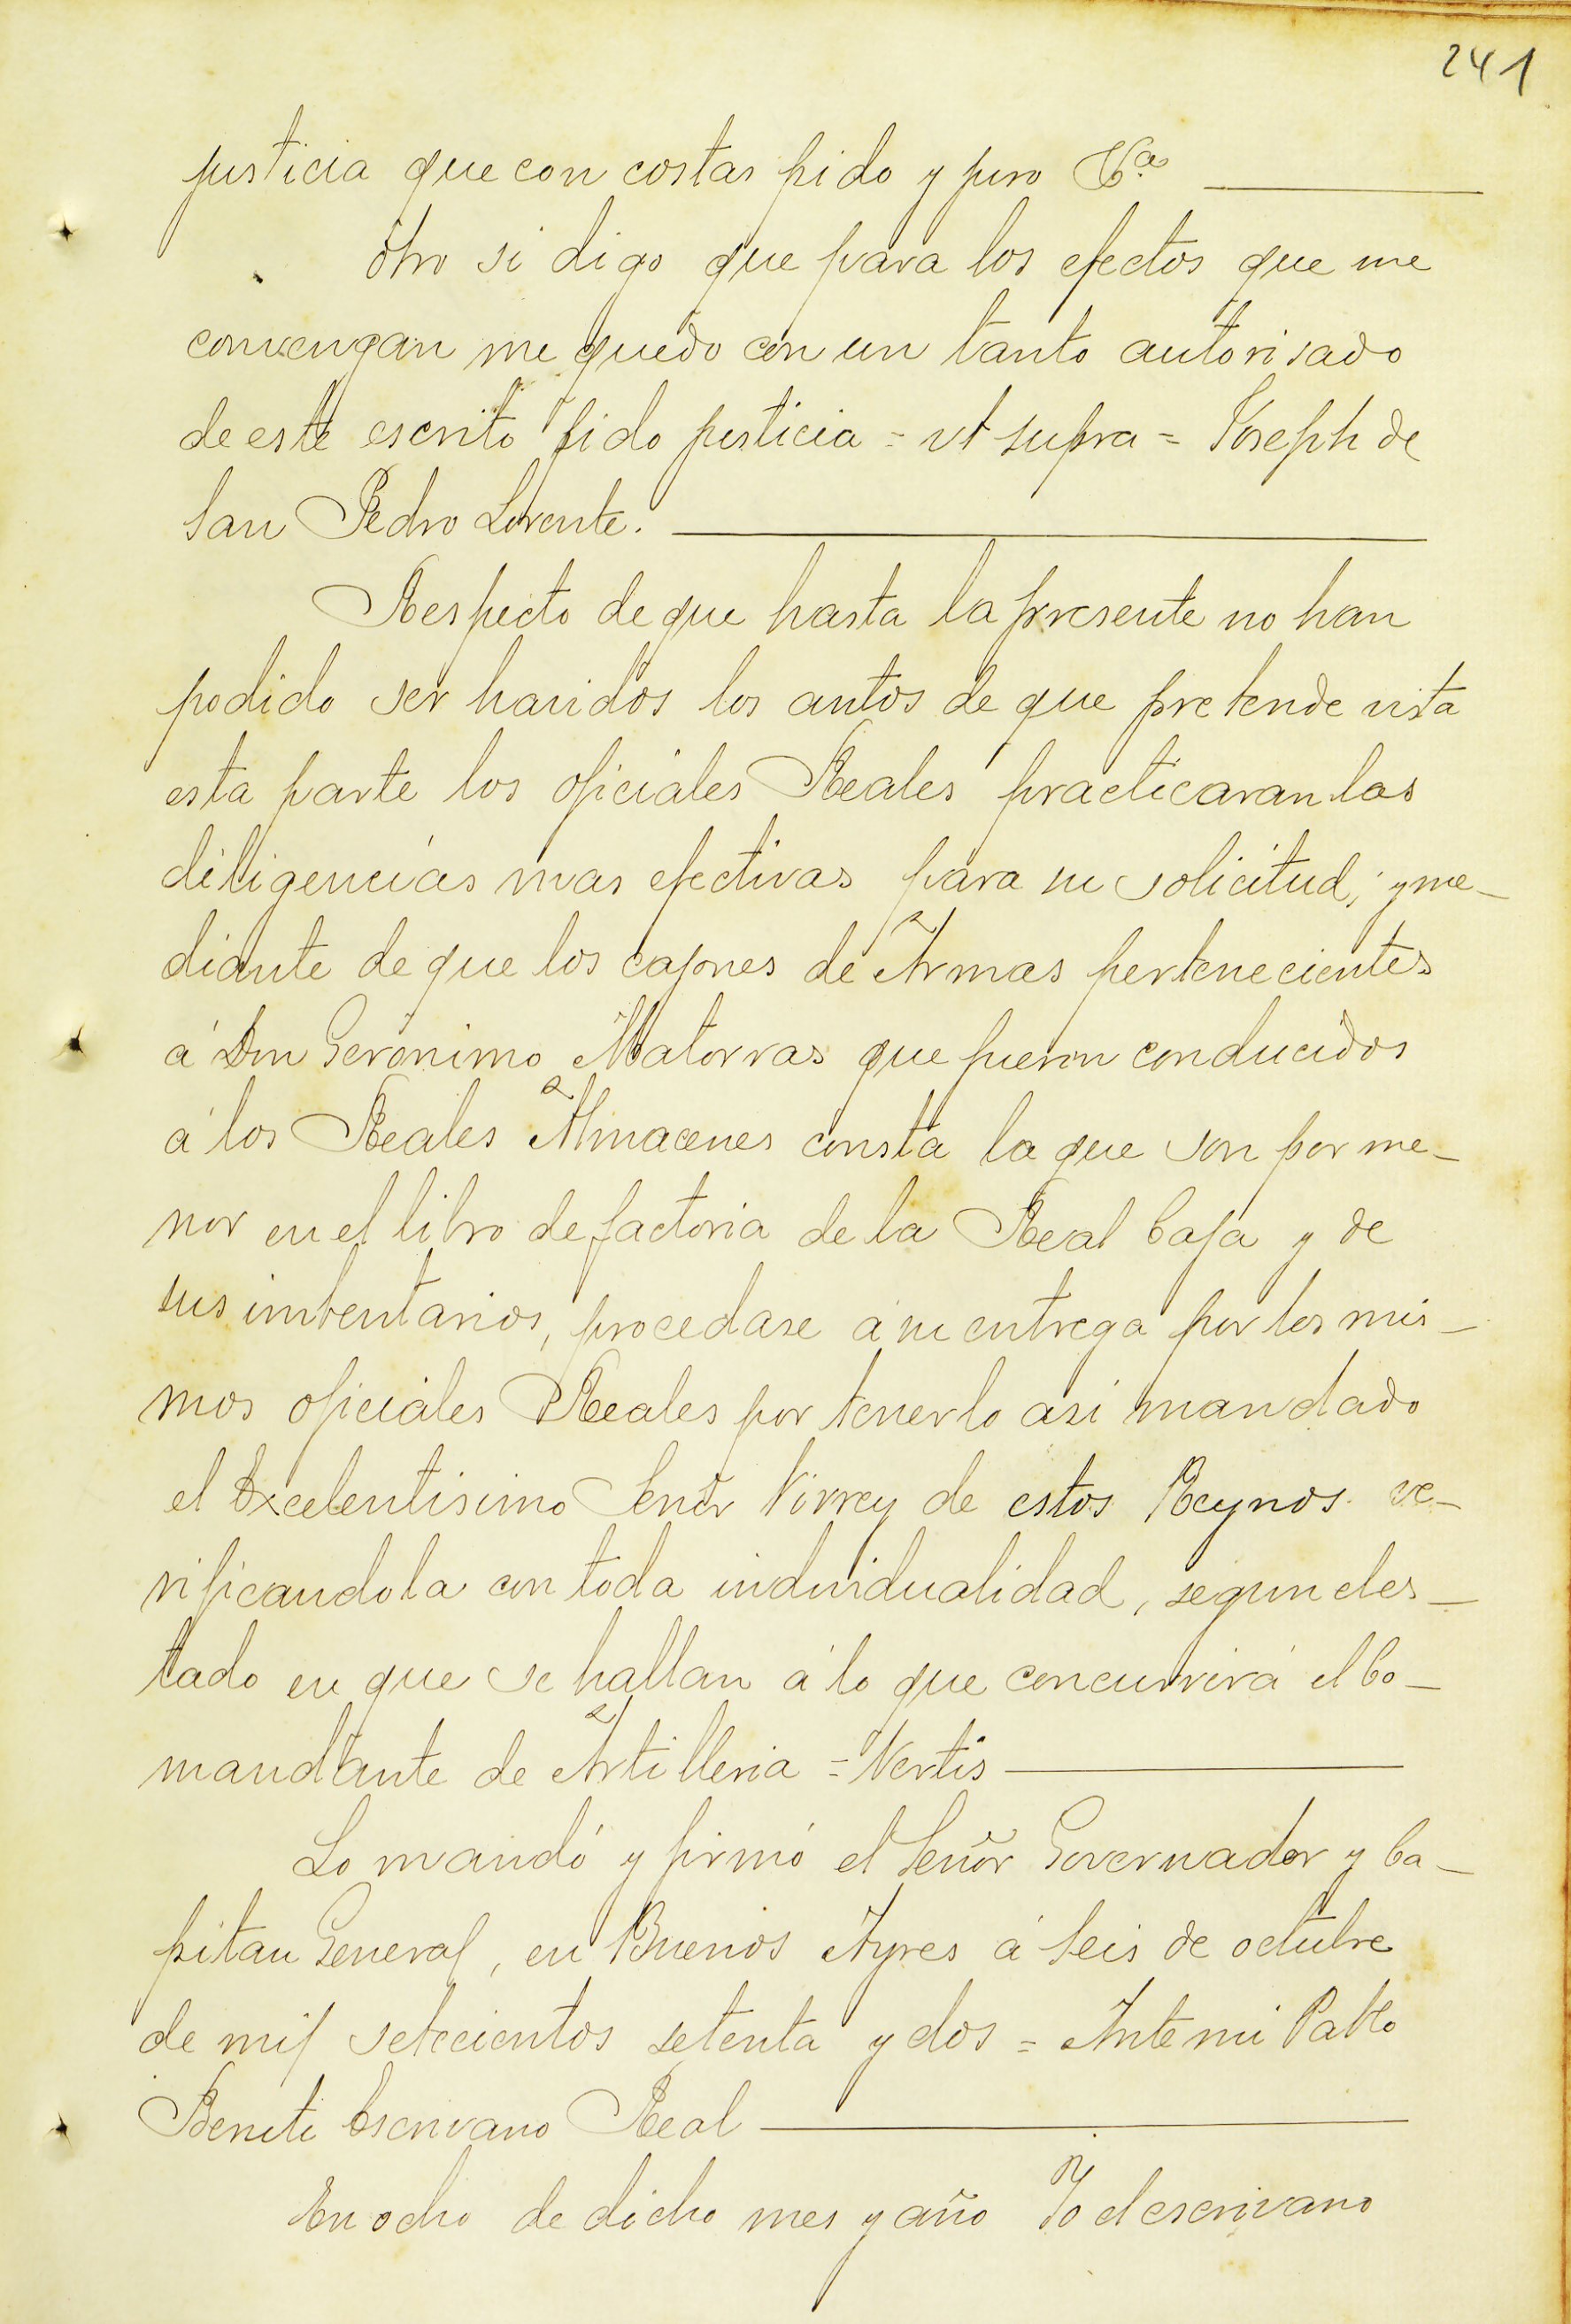 241
justicia que con costas pido y juro Vª
otro si digo que para los efectos que me
convengan me quedo con un tanto autorisado
de este escrito pido justicia = ut supra = Joseph de
San Pedro Lorente.
Respecto de que hasta la presente no han
podido ser havidos los autos de que pretende vista
esta parte los oficiales Reales practicaran las
diligencias mas efectivas para su solicitud; y me-
diante de que los cajones de Armas pertenecientes
á Don Geronimo Matorras que fueron conducidos
á los Reales Almacenes consta la que son por me-
nor en el libro de factoria de la Real Caja y de
sus imbentarios, procedase a su entrega por los mis-
mos oficiales Reales por tenerlo asi mandado
el Excelentisimo Señor Virrey de estos Reynos ve-
rificandola con toda individualidad, segun el es-
tado en que se hallan á lo que concurrirá el Co-
mandante de Artilleria = Vertis
Lo mandó y firmó el Señor Governador y Ca-
pitan General, en Buenos Ayres á seis de octubre
de mil setecientos setenta y dos = Ante mi Pablo
Beruti Escrivano Real
En ocho de dicho mes y año Yo el escrivano